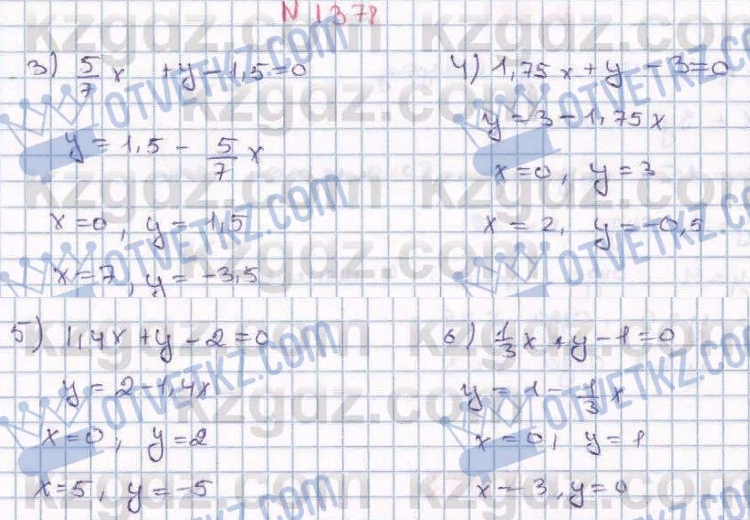 N 1378
3) 5/7 x + y - 1,5 = 0
y = 1,5 - 5/7 x
x = 0, y = 1,5
x = 7, y = -3,5
4) 1,75x + y - 3 = 0
y = 3 - 1,75x
x = 0, y = 3
x = 2, y = -0,5
5) 1,4x + y - 2 = 0
y = 2 - 1,4x
x = 0, y = 2
x = 5, y = -5
6) 1/3 x + y - 1 = 0
y = 1 - 1/3 x
x = 0, y = 1
x = 3, y = 0
kzgdz.com
OTVETKZ.COM